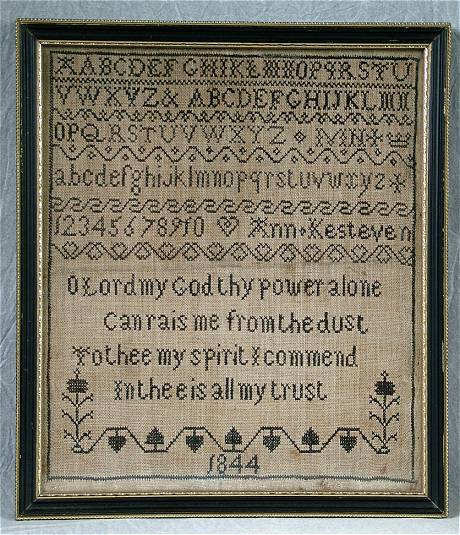 ABCDEFGHIKLMNOPQRSTU
VWXYZ& ABCDEFGHIJKLMN
OPQRSTUVWXYZ
abcdefghijklmnopqrstuvwxyz
12345678910 Ann Kesteven
O Lord my God thy power alone
Can rais me from the dust
To thee my spirit I commend
In thee is all my trust
1844